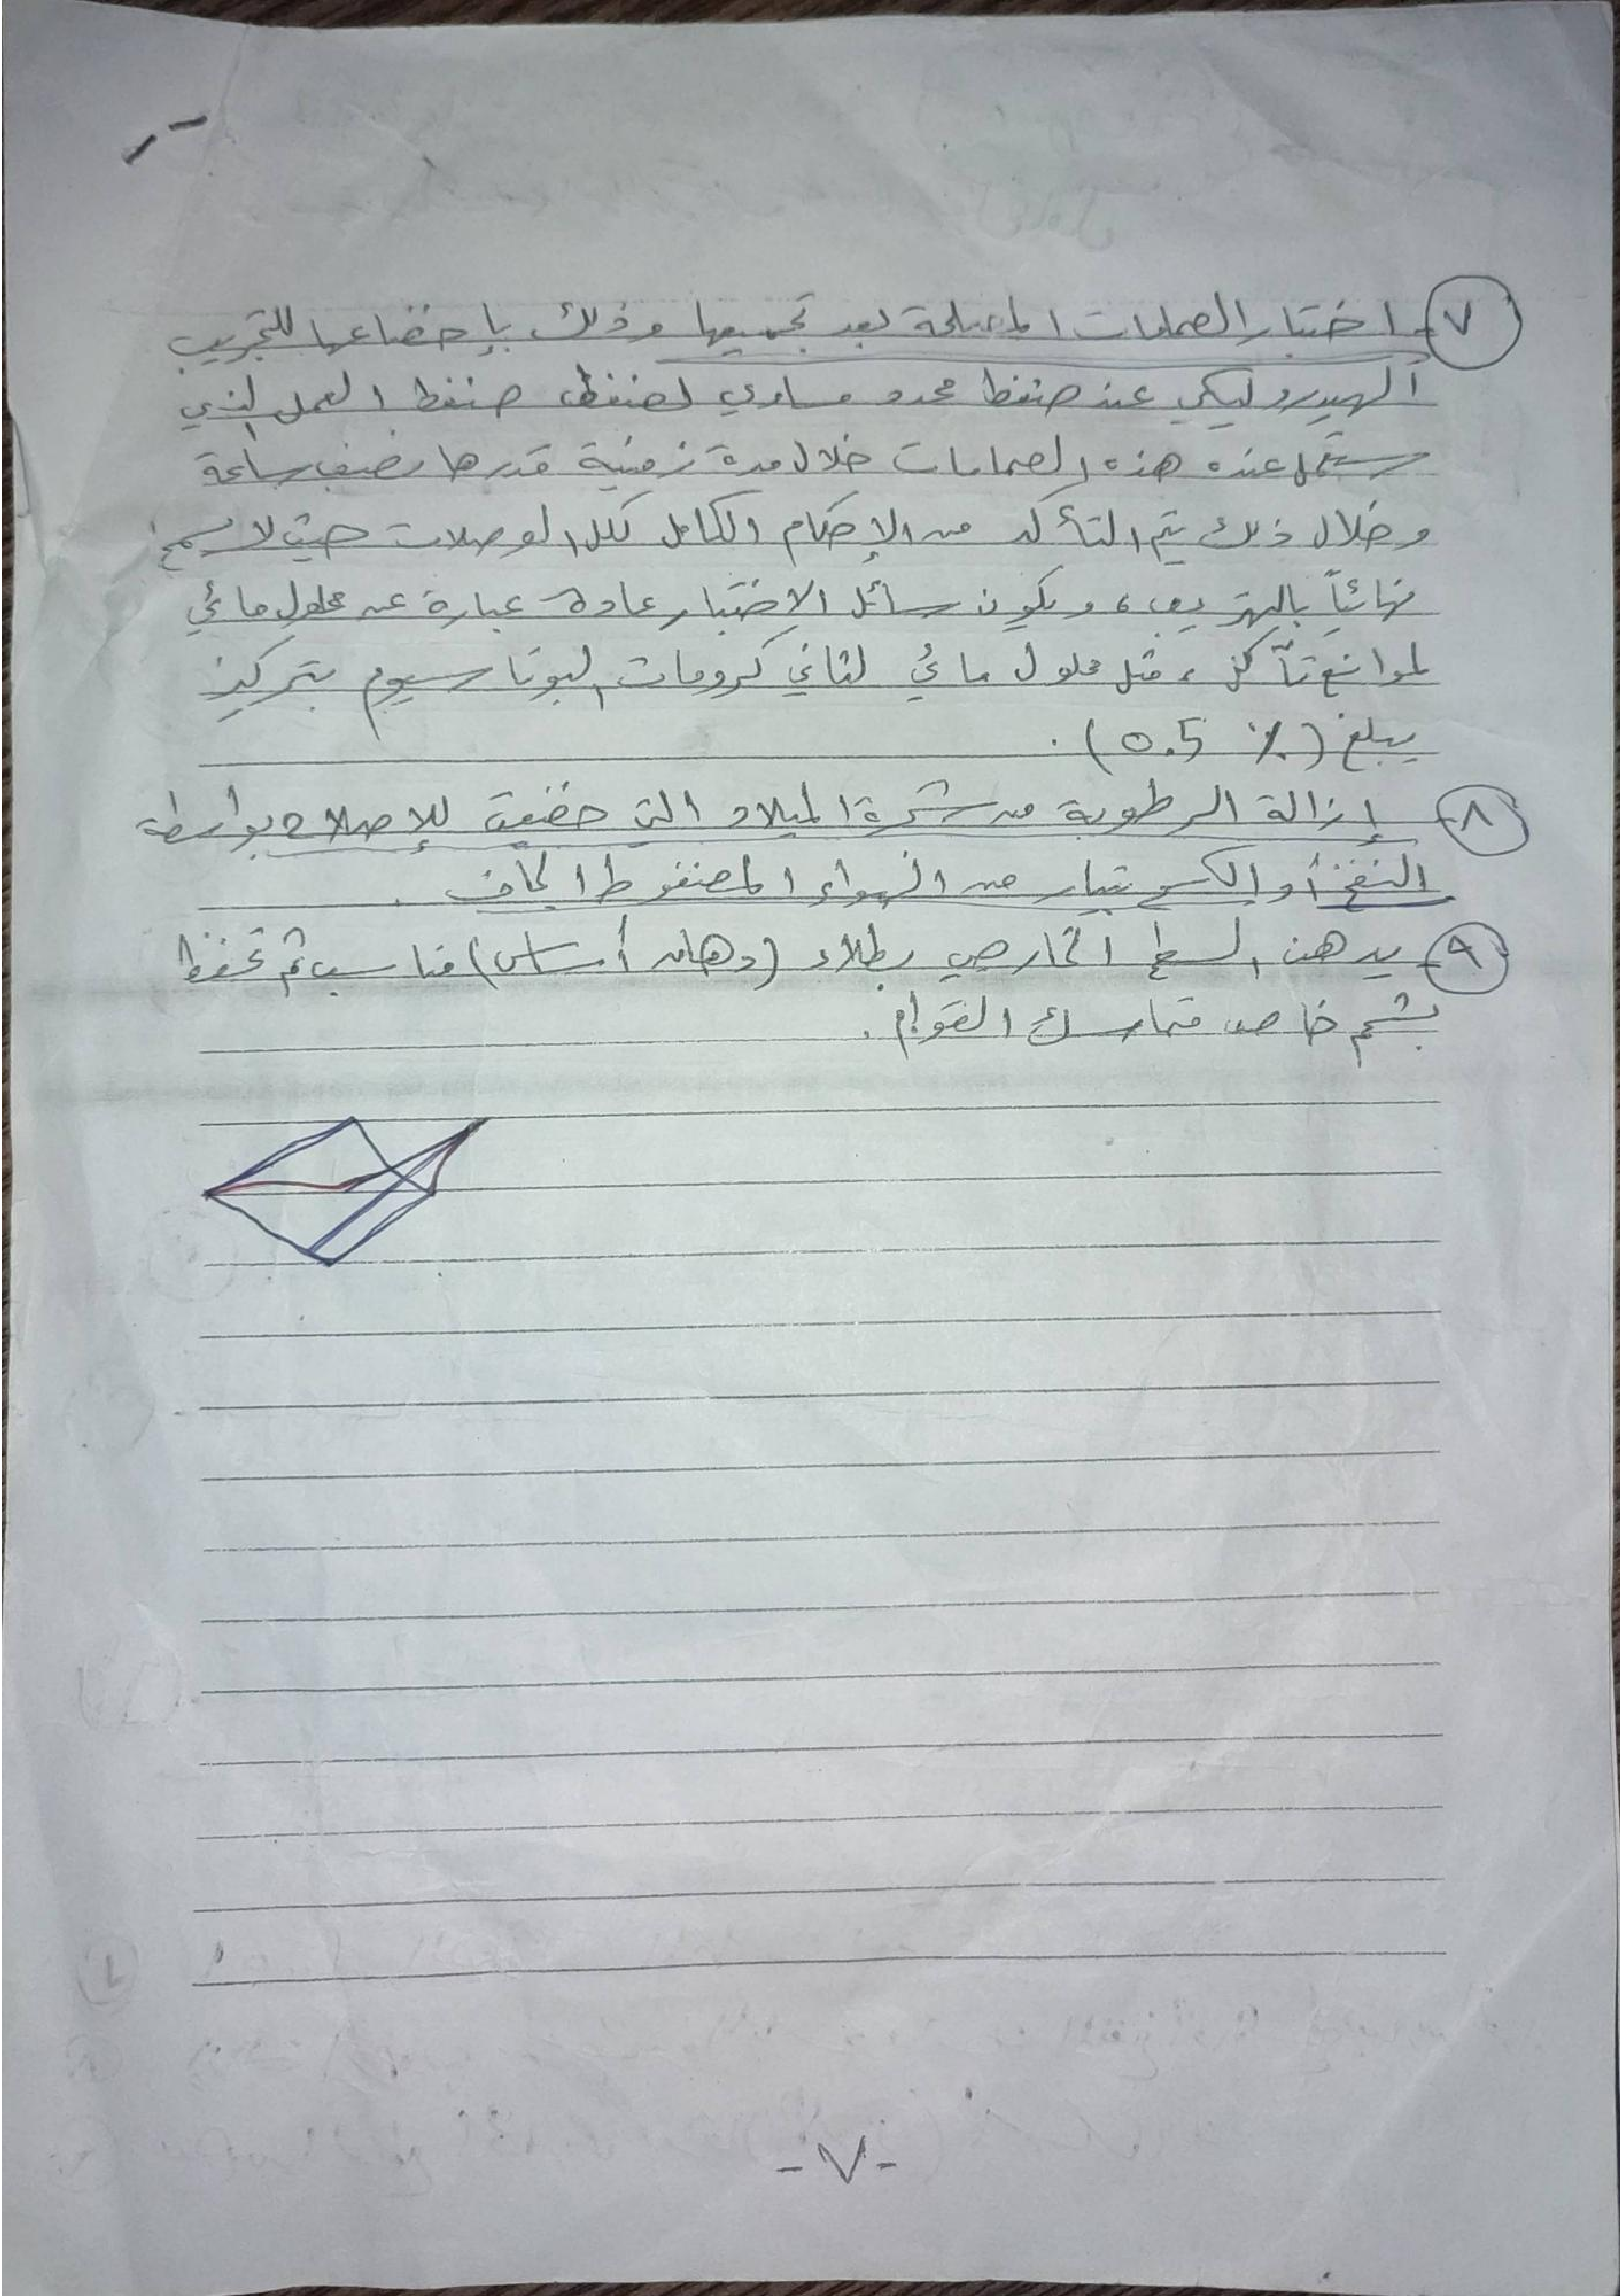 ٧- اختبار الصمامات المصلحة بعد تجميعها وذلك بإخضاعها للتجريب
الهيدروليكي عند ضغط محدد مساوي لضغط ضغط العمل الذي
ستعمل عنده هذه الصمامات خلال مدة زمنية قدرها نصف ساعة
وخلال ذلك يتم التأكد من الإحكام الكامل لكل الوصلات حيث لا يسمح
نهائياً بالتهريب، ويكون سائل الاختبار عادة عبارة عن محلول مائي
لموانع تآكل، مثل محلول مائي لثاني كرومات البوتاسيوم بتركيز
يبلغ (0.5 %).
٨- إزالة الرطوبة من شجرة الميلاد التي خضعت للإصلاح بواسطة
النفخ أو الكسح بتيار من الهواء المضغوط الجاف.
٩- يدهن السطح الخارجي بطلاء (دهان أساس) مناسب ثم تحفظ
بشحم خاص متماسك القوام.
-٧-